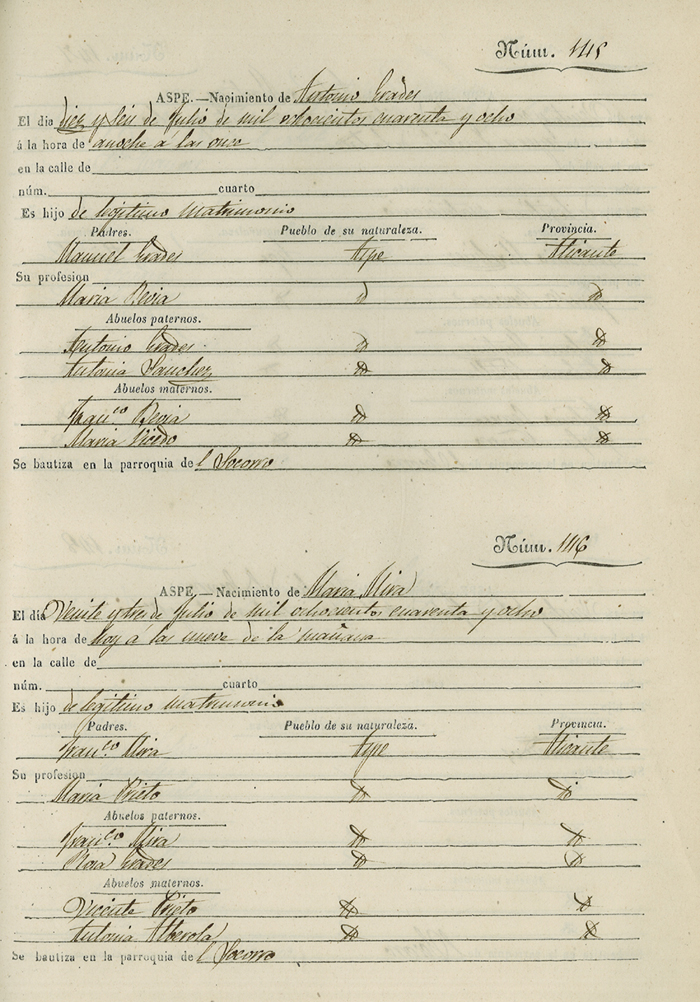 Núm. 115
ASPE.—Nacimiento de Antonio Erades
El dia diez y seis de Julio de mil ochocientos cuarenta y ocho
á la hora de anoche á las once
en la calle de
núm. cuarto
Es hijo de legitimo matrimonio
Padres. Pueblo de su naturaleza. Provincia.
Manuel Erades Aspe Alicante
Su profesion
Maria Bevia
Abuelos paternos.
Antonio Erades
Antonia Sanchez
Abuelos maternos.
Fran.co Bevia
Maria
Se bautiza en la parroquia de l Socorro
Núm. 116
ASPE.—Nacimiento de Maria Mira
El dia Veinte y tres de Julio de mil ochocientos cuarenta y ocho
á la hora de hoy a las nueve de la mañana
en la calle de
núm. cuarto
Es hijo de legitimo matrimonio
Padres. Pueblo de su naturaleza. Provincia.
Fran.co Mira Aspe Alicante
Su profesion
Maria Prieto
Abuelos paternos.
Fran.co Mira
Rosa Erades
Abuelos maternos.
Vicente Prieto
Antonia Alberola
Se bautiza en la parroquia de l Socorro